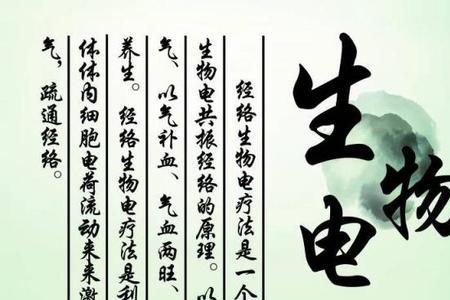 生物电
经络生物电疗法是一个
生物电共振经络的原理。以
气、以气补血、气血两旺、
养生。经络生物电疗法是利
体体内细胞电荷流动来来激
气，疏通经络。